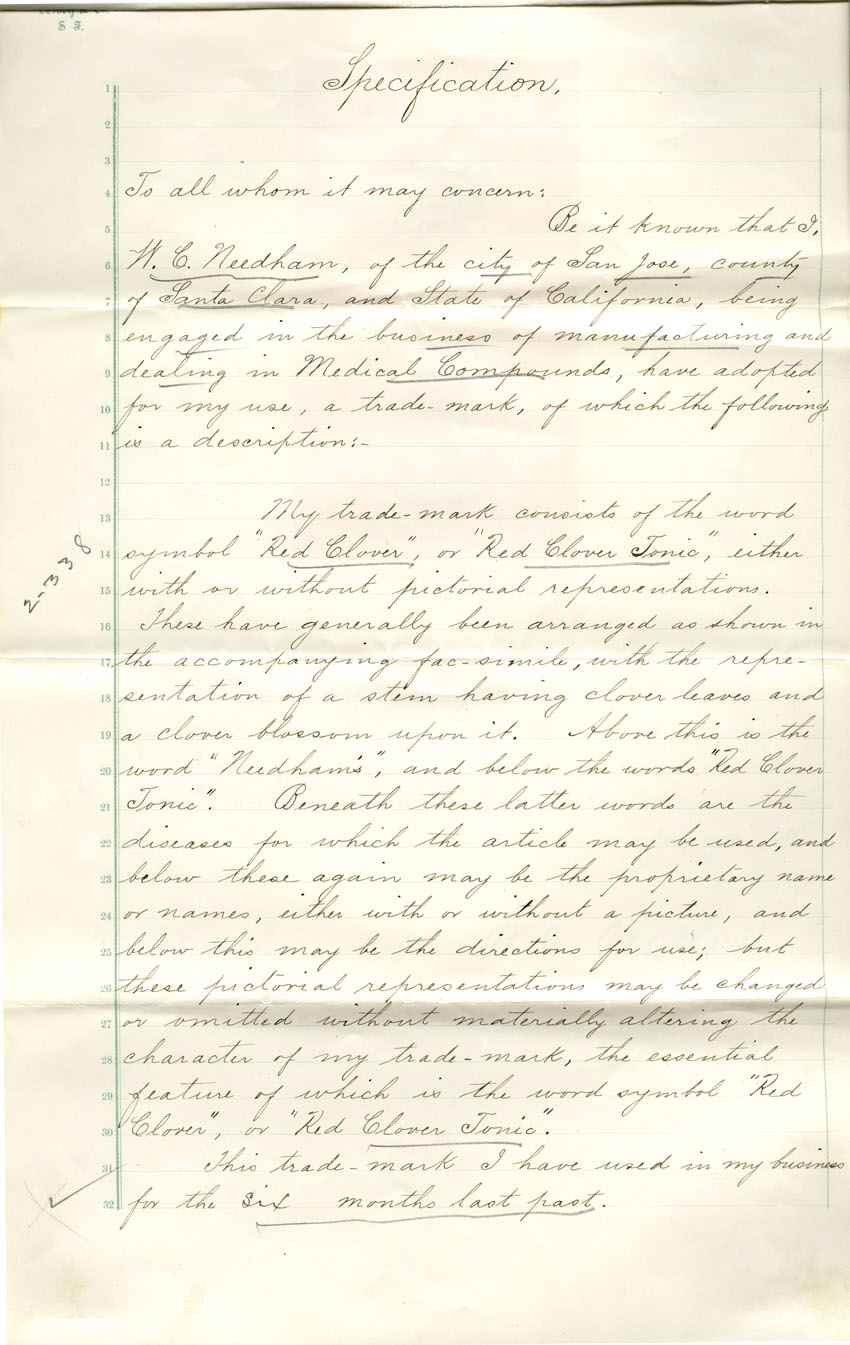 S F.
Specification.
1
2
3
4 To all whom it may concern:
5 Be it known that I,
6 W. C. Needham, of the city of San Jose, county
7 of Santa Clara, and State of California, being
8 engaged in the business of manufacturing and
9 dealing in Medical Compounds, have adopted
10 for my use, a trade-mark, of which the following
11 is a description:-
12
13 My trade-mark consists of the word
14 symbol "Red Clover", or "Red Clover Tonic", either
15 with or without pictorial representations.
16 These have generally been arranged as shown in
17 the accompanying fac-simile, with the repre-
18 sentation of a stem having clover leaves and
19 a clover blossom upon it. Above this is the
20 word "Needham's", and below the words "Red Clover
21 Tonic". Beneath these latter words are the
22 diseases for which the article may be used, and
23 below these again may be the proprietary name
24 or names, either with or without a picture, and
25 below this may be the directions for use; but
26 these pictorial representations may be changed
27 or omitted without materially altering the
28 character of my trade-mark, the essential
29 feature of which is the word symbol "Red
30 Clover", or "Red Clover Tonic".
31 This trade-mark I have used in my business
32 for the six months last past.
2-338